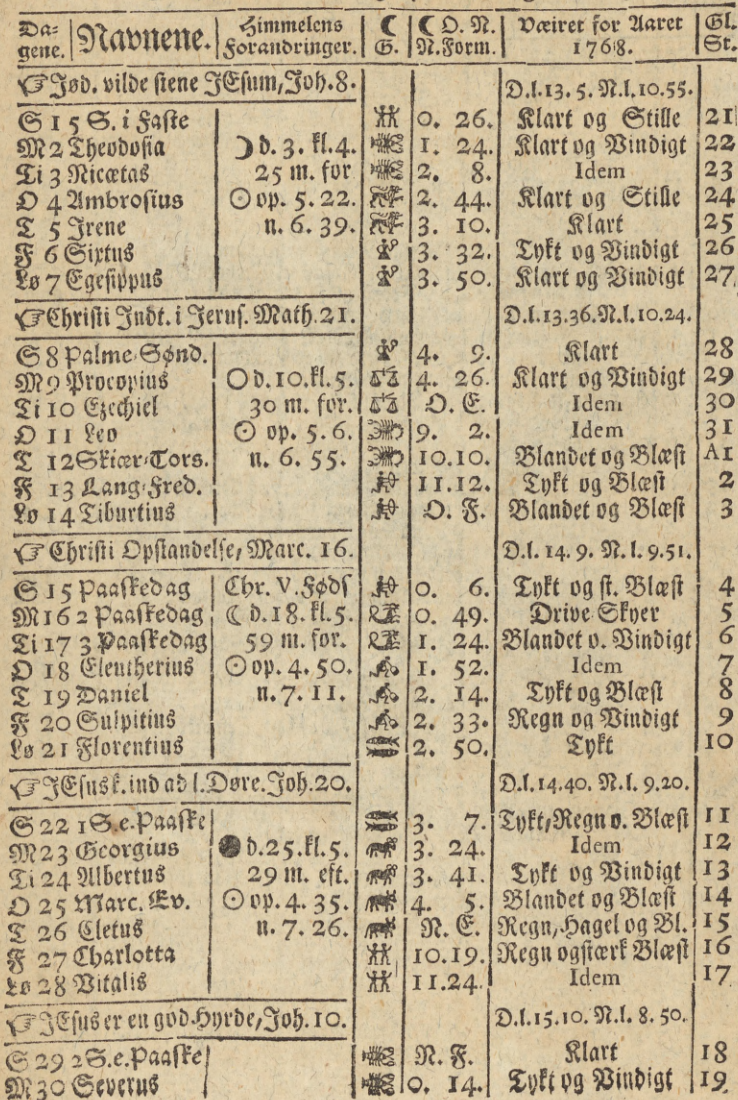 Da= Navnene. Himmelens ☾ ☾ O. N. Væiret for Aaret Gl.
gene. Forandringer. G. N.Form. 1768. St.
☞Jød. vilde stene JEsum, Joh.8. D.l.13. 5. N.l.10.55.
S 1 5 S. i Faste 0. 26. Klart og Stille 21
M 2 Theodosia ☽ d. 3. kl.4. 1. 24. Klart og Vindigt 22
Ti 3 Nicætas 25 m. for 2. 8. Idem 23
O 4 Ambrosius ☉ op. 5. 22. 2. 44. Klart og Stille 24
T 5 Irene n. 6. 39. 3. 10. Klart 25
F 6 Sixtus 3. 32. Tykt og Vindigt 26
Lø 7 Egesippus 3. 50. Klart og Vindigt 27
☞Christi Indt. i Jerus. Math.21. D.l.13.36. N.l.10.24.
S 8 Palme-Sønd. 4. 9. Klart 28
M 9 Procopius O d.10.kl.5. 4. 26. Klart og Vindigt 29
Ti 10 Ezechiel 30 m. for. O. E. Idem 30
O 11 Leo ☉ op. 5.6. 9. 2. Idem 31
T 12 Skiær-Tors. n. 6. 55. 10.10. Blandet og Blæst A1
F 13 Lang-Fred. 11.12. Tykt og Blæst 2
Lø 14 Tiburtius O. F. Blandet og Blæst 3
☞ Christi Opstandelse, Marc. 16. D.l. 14. 9. N. l. 9.51.
S 15 Paaskedag Chr. V. Føds 0. 6. Tykt og st. Blæst 4
M 16 2 Paaskedag ☾ d.18. kl.5. 0. 49. Drive Skyer 5
Ti 17 3 Paaskedag 59 m. for. 1. 24. Blandet o. Vindigt 6
O 18 Eleutherius ☉ op. 4. 50. 1. 52. Idem 7
T 19 Daniel n. 7. 11. 2. 14. Tykt og Blæst 8
F 20 Sulpitius 2. 33. Regn og Vindigt 9
Lø 21 Florentius 2. 50. Tykt 10
☞JEsus k. ind ad l. Døre. Joh.20. D.l.14.40. N.l. 9.20.
S 22 1 S.e.Paaske 3. 7. Tykt, Regn o. Blæst 11
M 23 Georgius ● d.25.kl.5. 3. 24. Idem 12
Ti 24 Albertus 29 m. eft. 3. 41. Tykt og Vindigt 13
O 25 Marc. Ev. ☉ op. 4. 35. 4. 5. Blandet og Blæst 14
T 26 Cletus n. 7. 26. N. E. Regn, Hagel og Bl. 15
F 27 Charlotta 10.19. Regn og stærk Blæst 16
Lø 28 Vitalis 11.24. Idem 17
☞JEsus er en god Hyrde, Joh. 10. D.l.15.10. N.l. 8. 50.
S 29 2 S.e.Paaske N. F. Klart 18
M 30 Severus 0. 14. Tykt og Vindigt 19